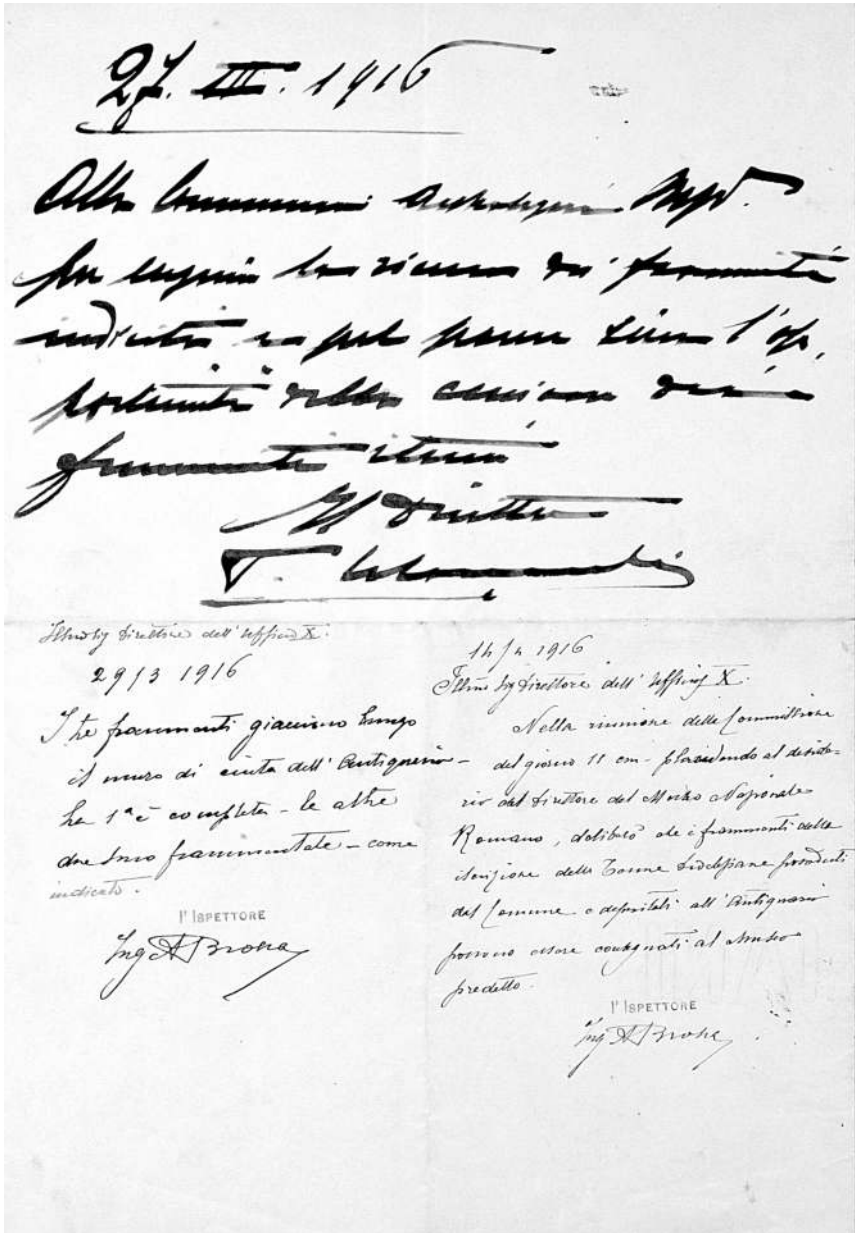 27. III. 1916
Alla Commissione Archeologica
per eseguire la ricerca dei frammenti
indicati e pel parere circa l'op,
portunità della cessione dei
frammenti stessi
Il Direttore
Illmo Sig Direttore dell'Ufficio X.
29/3 1916
I tre frammenti giacciono lungo
il muro di cinta dell'Antiquario -
La 1ª è completa - le altre
due sono frammentate - come
indicato.
l'ISPETTORE
Ing A
14/4 1916
Illmo Sig Direttore dell'Ufficio X.
Nella riunione della Commissione
del giorno 11 cm - plaudendo al deside-
rio del Direttore del Museo Nazionale
Romano, deliberò che i frammenti della
iscrizione delle Terme posseduti
dal Comune e depositati all'Antiquario
possono essere consegnati al Museo
predetto.
l'ISPETTORE
Ing A